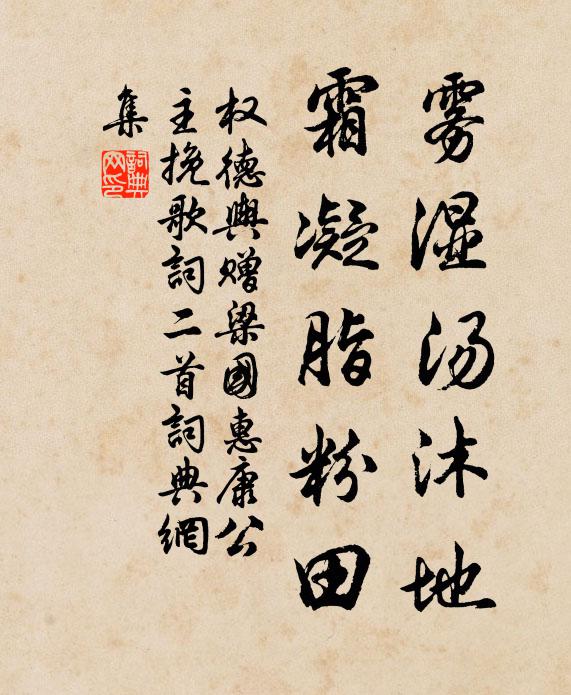 雾湿汤沐地
霜凝脂粉田
权德舆赠梁國惠康公
主挽歌詞二首詞典網
集
詞典
网印